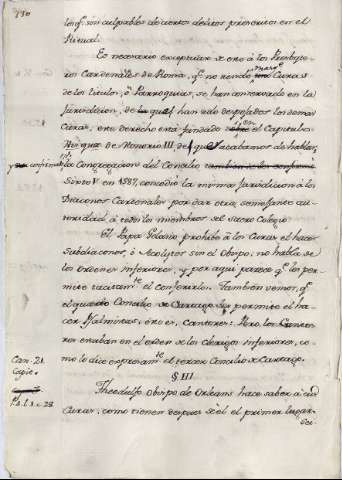 los q.e son culpables de ciertos delitos prescritos en el
Ritual.
Es necesario exceptuar de esto á los Presbyte-
ros Cardenales de Roma, q.e no siendo mas q.e Curas
de los titulos, ó Parroquias, se han conservado en la
Jurisdiccion, de q.e han sido despojados los demas
Curas: este derecho está fundado en el Capitulo
de Honorio III. de q.e acabamos de hablar,
y confirmado p.r la Congregacion del Concilio
Sixto V en 1587, concedio la misma Jurisdiccion á los
Diaconos Cardenales por dar esta semejante au-
toridad á todos los miembros del sacro Colegio.
El Papa Gelasio prohibe á los Curas el hacer
Subdiaconos, ó Acolytos sin el Obispo, no habla de
los ordenes inferiores, y por aqui parece q.e les per-
mite tacitam.te el conferirlos. Tambien vemos, q.e
el quarto Concilio de Cartago les permite el ha-
cer Psalmistas, esto es, Cantores: Pero los Canto-
res estaban en el orden de los clerigos inferiores, co-
mo lo dice expresam.te el tercer Concilio de Cartago.
Can. 21.
§ III
Theodulfo Obispo de Orleans hace saber á sus
Curas, como tienen despues de él el primer lugar